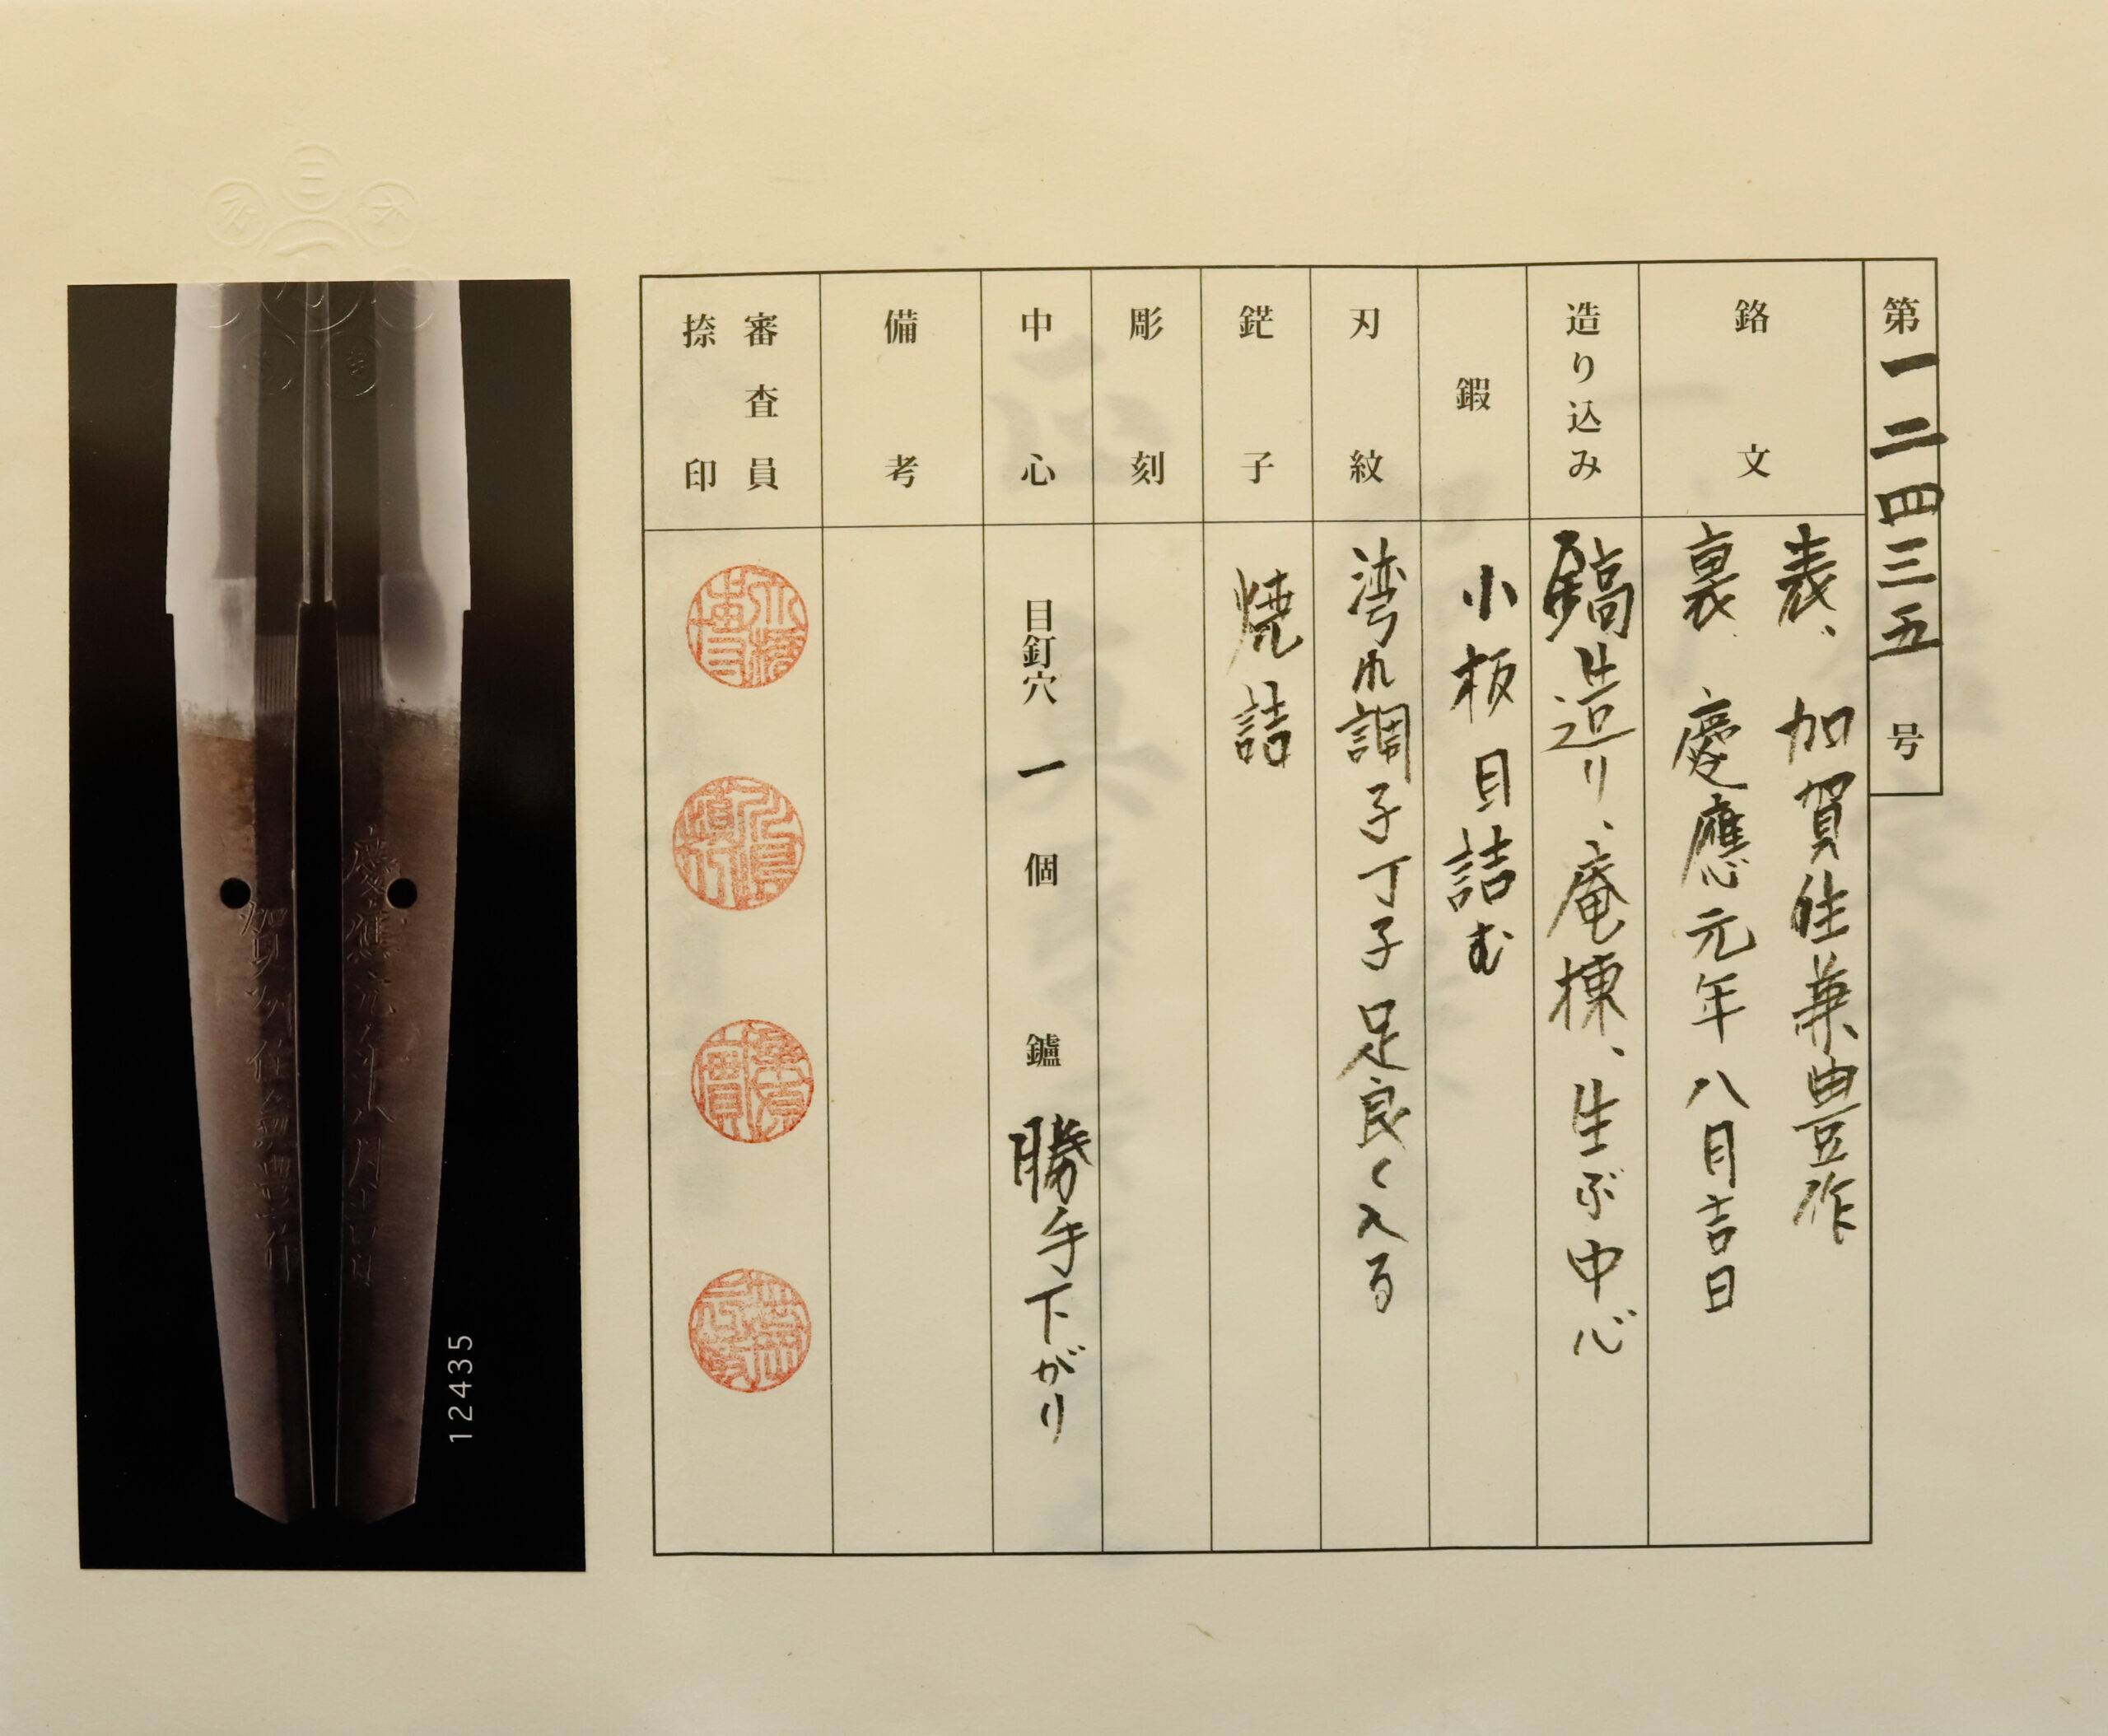 第一二四三五号
鉻文
表、加賀住兼豊作
裏、慶應元年八月吉日
造り込み
鎬造り、庵棟、生ぶ中心
鍜
小板目詰む
刃紋
湾れ調子丁子足良く入る
鋩子
焼詰
彫刻
中心
目釘穴 一 個 鑢 勝手下がり
備考
審査員
捺印
慶應元年八月吉日
賀州住兼豊作
12435